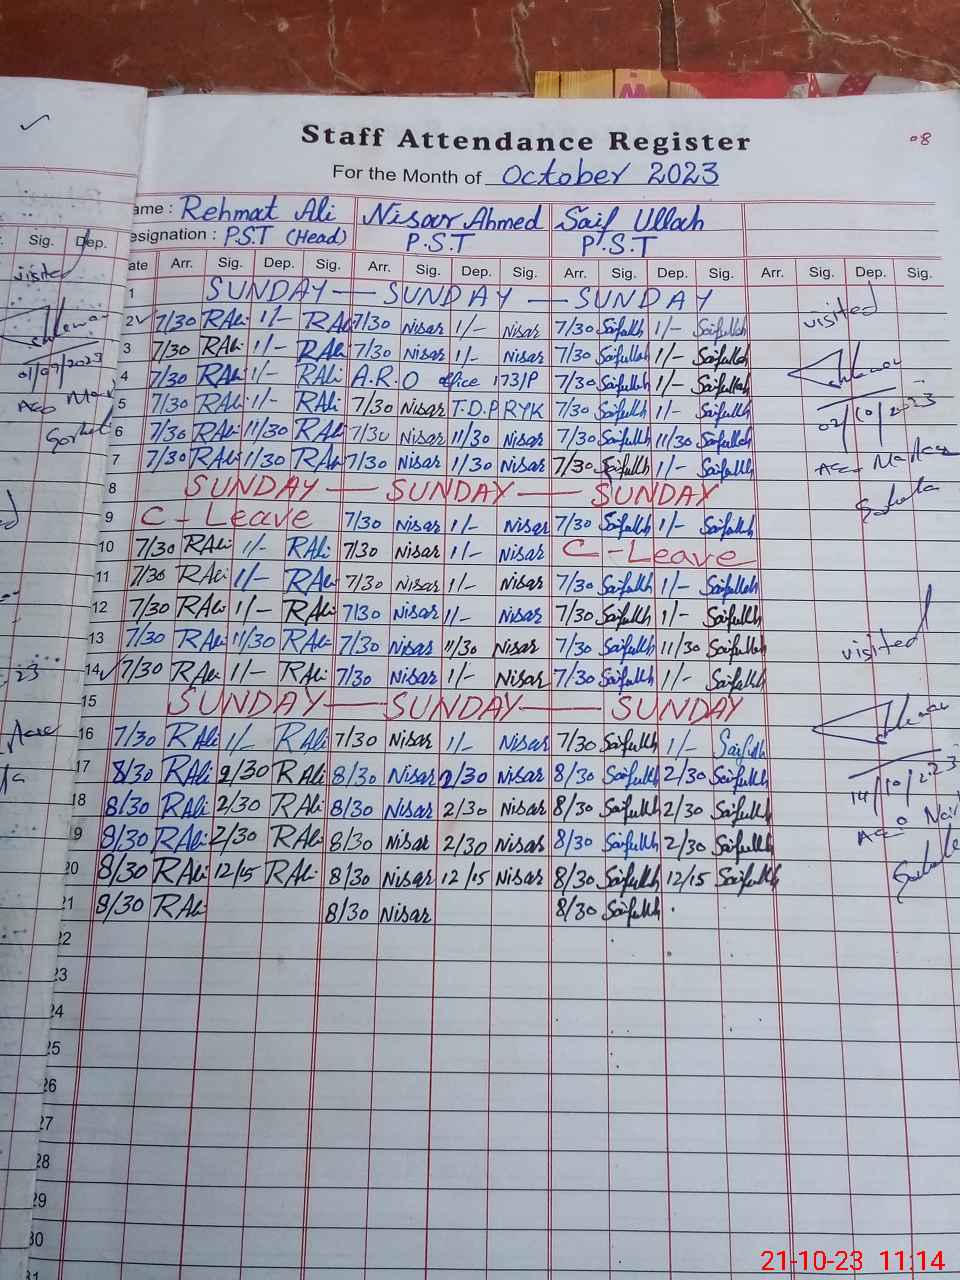 Staff Attendance Register
08
For the Month of October 2023
ame : Rehmat Ali Nisar Ahmed Saif Ullah
esignation : P.S.T (Head) P.S.T P.S.T
Sig. Dep.
ate Arr. Sig. Dep. Sig. Arr. Sig. Dep. Sig. Arr. Sig. Dep. Sig. Arr. Sig. Dep. Sig.
1 SUNDAY — SUNDAY — SUNDAY
2 7/30 RAli 1/- RAli 7/30 Nisar 1/- Nisar 7/30 Saifullh 1/- Saifullh
3 7/30 RAli 1/- RAli 7/30 Nisar 1/- Nisar 7/30 Saifullh 1/- Saifullh
4 7/30 RAli 1/- RAli A.R.O office 173/P 7/30 Saifullh 1/- Saifullh
5 7/30 RAli 1/- RAli 7/30 Nisar T.D.P RYK 7/30 Saifullh 1/- Saifullh
6 7/30 RAli 11/30 RAli 7/30 Nisar 11/30 Nisar 7/30 Saifullh 11/30 Saifullh
7 7/30 RAli 1/30 RAli 7/30 Nisar 1/30 Nisar 7/30 Saifullh 1/- Saifullh
8 SUNDAY — SUNDAY — SUNDAY
9 C - Leave 7/30 Nisar 1/- Nisar 7/30 Saifullh 1/- Saifullh
10 7/30 RAli 1/- RAli 7/30 Nisar 1/- Nisar C - Leave
11 7/30 RAli 1/- RAli 7/30 Nisar 1/- Nisar 7/30 Saifullh 1/- Saifullh
12 7/30 RAli 1/- RAli 7/30 Nisar 1/- Nisar 7/30 Saifullh 1/- Saifullh
13 7/30 RAli 11/30 RAli 7/30 Nisar 11/30 Nisar 7/30 Saifullh 11/30 Saifullh
14 7/30 RAli 1/- RAli 7/30 Nisar 1/- Nisar 7/30 Saifullh 1/- Saifullh
15 SUNDAY — SUNDAY — SUNDAY
16 7/30 RAli 1/- RAli 7/30 Nisar 1/- Nisar 7/30 Saifullh 1/- Saifullh
17 8/30 RAli 2/30 RAli 8/30 Nisar 2/30 Nisar 8/30 Saifullh 2/30 Saifullh
18 8/30 RAli 2/30 RAli 8/30 Nisar 2/30 Nisar 8/30 Saifullh 2/30 Saifullh
9 8/30 RAli 2/30 RAli 8/30 Nisar 2/30 Nisar 8/30 Saifullh 2/30 Saifullh
20 8/30 RAli 12/15 RAli 8/30 Nisar 12/15 Nisar 8/30 Saifullh 12/15 Saifullh
21 8/30 RAli 8/30 Nisar 8/30 Saifullh
22
23
24
25
26
27
28
29
30
31
visited
02/10/2023
visited
14/10/2023
visited
01/09/2023
21-10-23 11:14